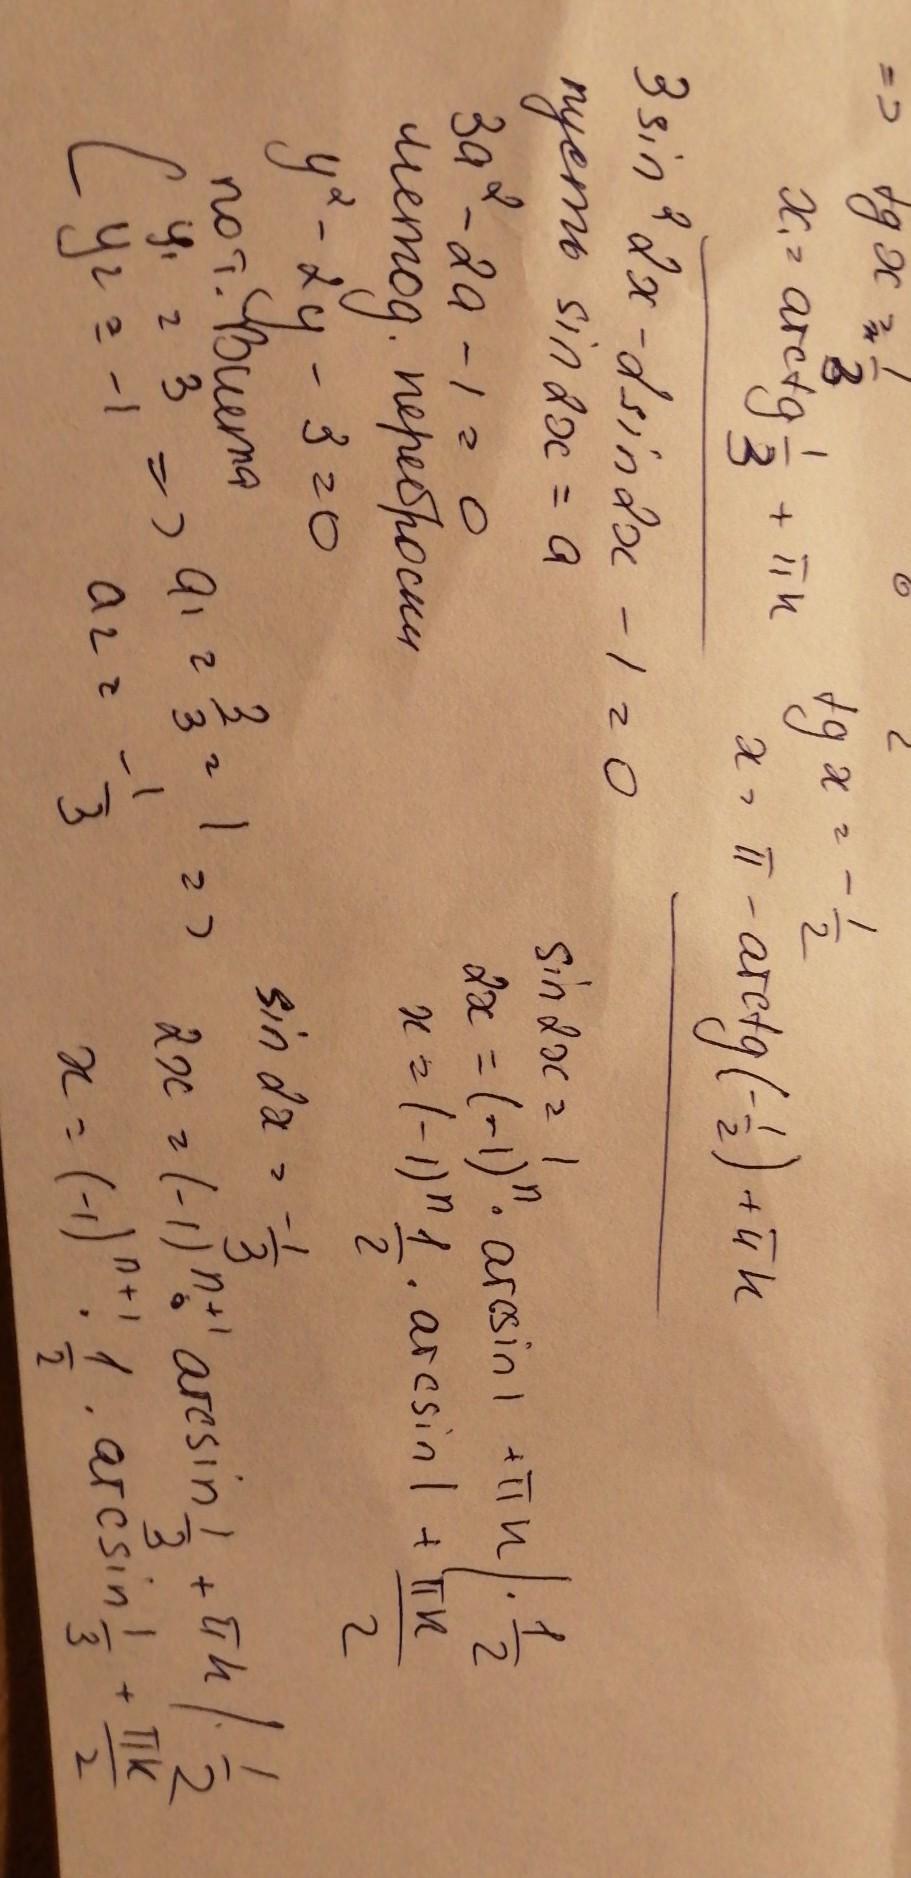 => tg x = 1/3
x₁ = arctg 1/3 + πk
tg x = -1/2
x = π - arctg(-1/2) + πk
3 sin² 2x - 2 sin 2x - 1 = 0
пусть sin 2x = a
3a² - 2a - 1 = 0
метод. переброски
y² - 2y - 3 = 0
по т. Виета
y₁ = 3 => a₁ = 3/3 = 1 =>
y₂ = -1 a₂ = -1/3
sin 2x = 1
2x = (-1)ⁿ · arcsin 1 + πk | · 1/2
x = (-1)ⁿ 1/2 · arcsin 1 + πk/2
sin 2x = -1/3
2x = (-1)ⁿ⁺¹ · arcsin 1/3 + πk | · 1/2
x = (-1)ⁿ⁺¹ · 1/2 · arcsin 1/3 + πk/2